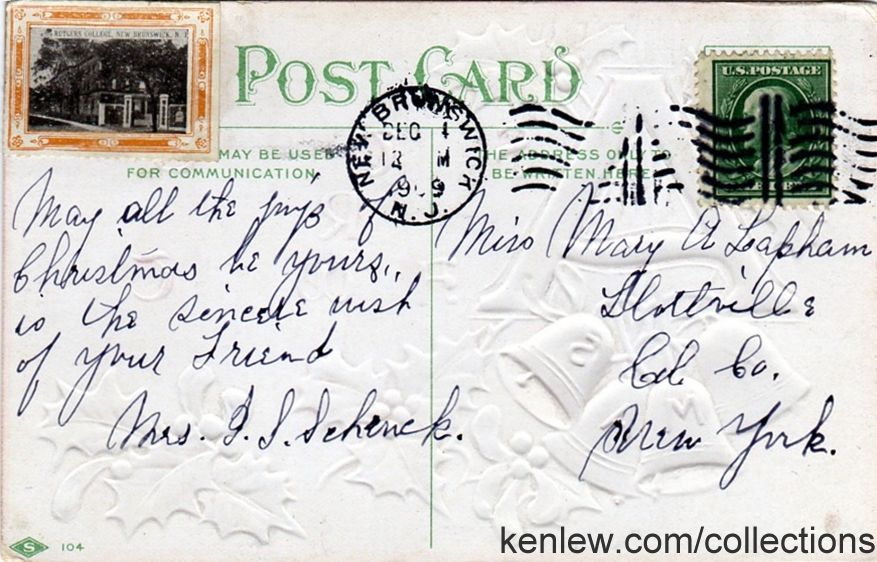 RUTGERS COLLEGE, NEW BRUNSWICK, N. J.
POST CARD
NEW BRUNSWICK
DEC
1909
N.J.
U.S. POSTAGE
MAY BE USED
FOR COMMUNICATION
THE ADDRESS ONLY TO
BE WRITTEN HERE
May all the joys of
Christmas be yours,
is the sincere wish
of your Friend
Mrs. J. S. Schenck.
Miss Mary A Lapham
Stottville
Col. Co.
New York.
S 104
kenlew.com/collections